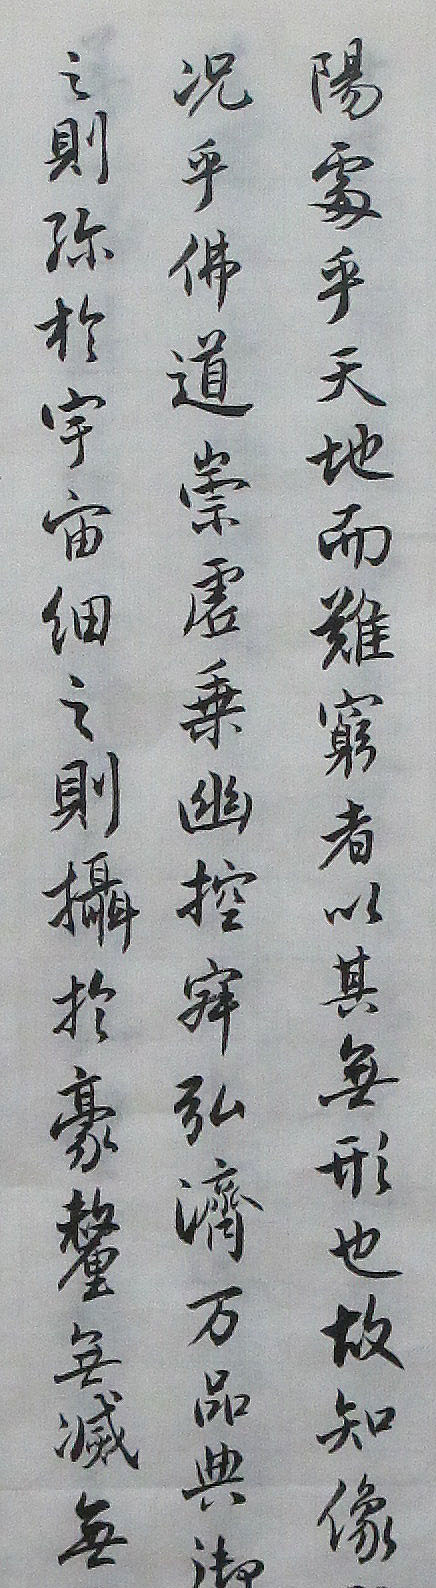 陽處乎天地而難窮者以其無形也故知像
况乎佛道崇虛乗幽控寂弘濟万品典御
之則弥於宇宙細之則攝於豪釐無滅無